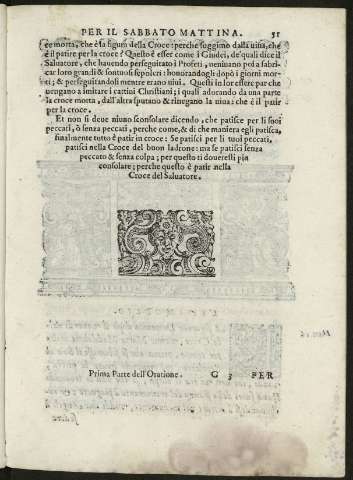 PER IL SABBATO MATTINA. 51
ce morta, che è la figura della Croce: perche fuggimo dalla uiua, che
è il patire per la croce? Questo è esser come i Giudei, de' quali dice il
Saluatore, che hauendo perseguitato i Profeti, ueniuano poi a fabri-
car loro grandi & sontuosi sepolcri: honorandogli dopò i giorni mor-
ti; & perseguitandogli mentre erano uiui. Questi in lor essere par che
uengano a imitare i cattiui Christiani; i quali adorando da una parte
la croce morta, dall'altra sputano & rinegano la uiua: che è il patir
per la croce.
Et non si deue niuno sconsolare dicendo, che patisce per li suoi
peccati, ò senza peccati, perche come, & di che maniera egli patisca,
finalmente tutto è patir in croce: Se patisci per li tuoi peccati,
patisci nella Croce del buon ladrone: ma se patisci senza
peccato & senza colpa; per questo ti doueresti piu
consolare; perche questo è patir nella
Croce del Saluatore.
Prima Parte dell'Oratione. G 3 PER